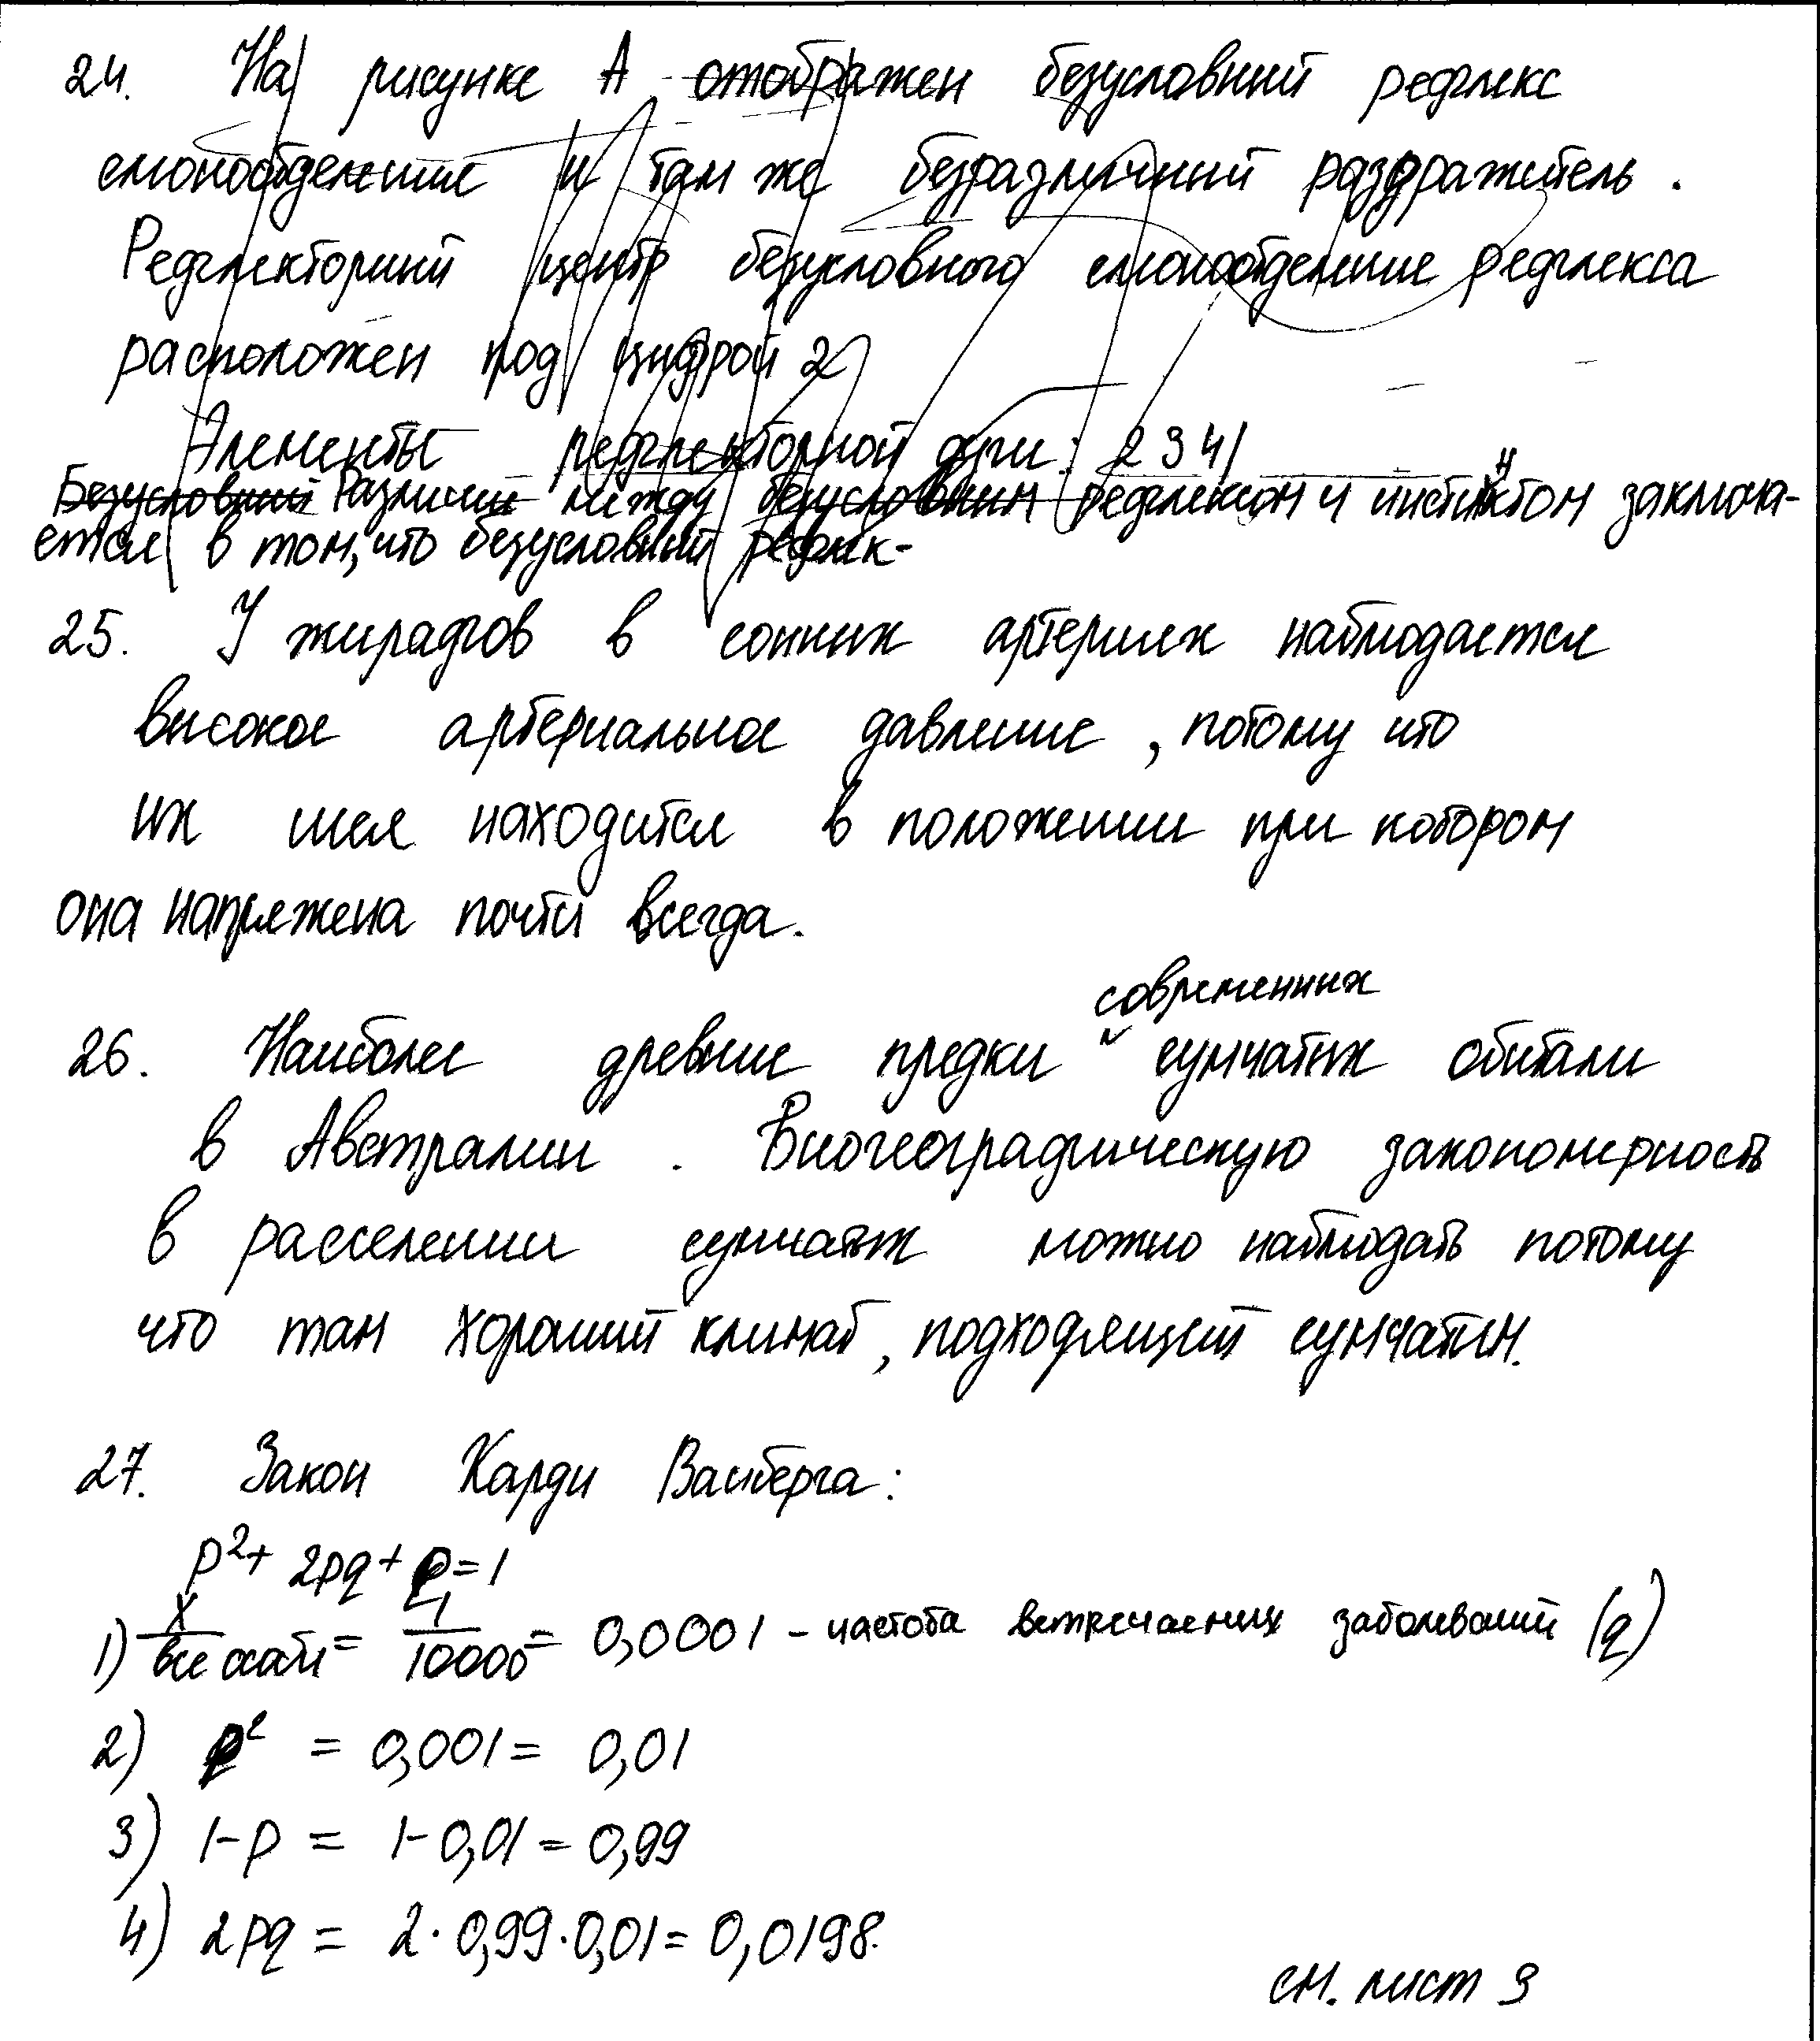 24. На рисунке А отображен безусловный рефлекс
слюноотделение и там же безразличный раздражитель.
Рефлекторный центр безусловного слюноотделение рефлекса
расположен под цифрой 2
Элементы рефлекторной дуги: 2 3 4 1
Безусловный Различии между безусловным рефлексом и инстинктом заключа-
ется в том, что безусловный рефлек-
25. У жирафов в сонных артериях наблюдается
высокое артериальное давление, потому что
их шея находится в положении при котором
она напряжена почти всегда.
современных
26. Наиболее древние предки ˅ сумчатых обитали
в Австралии. Биогеографическую закономерность
в расселении сумчатых можно наблюдать потому
что там хороший климат, подходящий сумчатым.
27. Закон Харди Вайберга:
p²+ 2pq+ p=1
1) X/все особи = 1/10000 = 0,0001 - частота встречаемых заболеваний (q)
2) p² = 0,001 = 0,01
3) 1-p = 1-0,01=0,99
4) 2pq = 2·0,99·0,01=0,0198.
см. лист 3